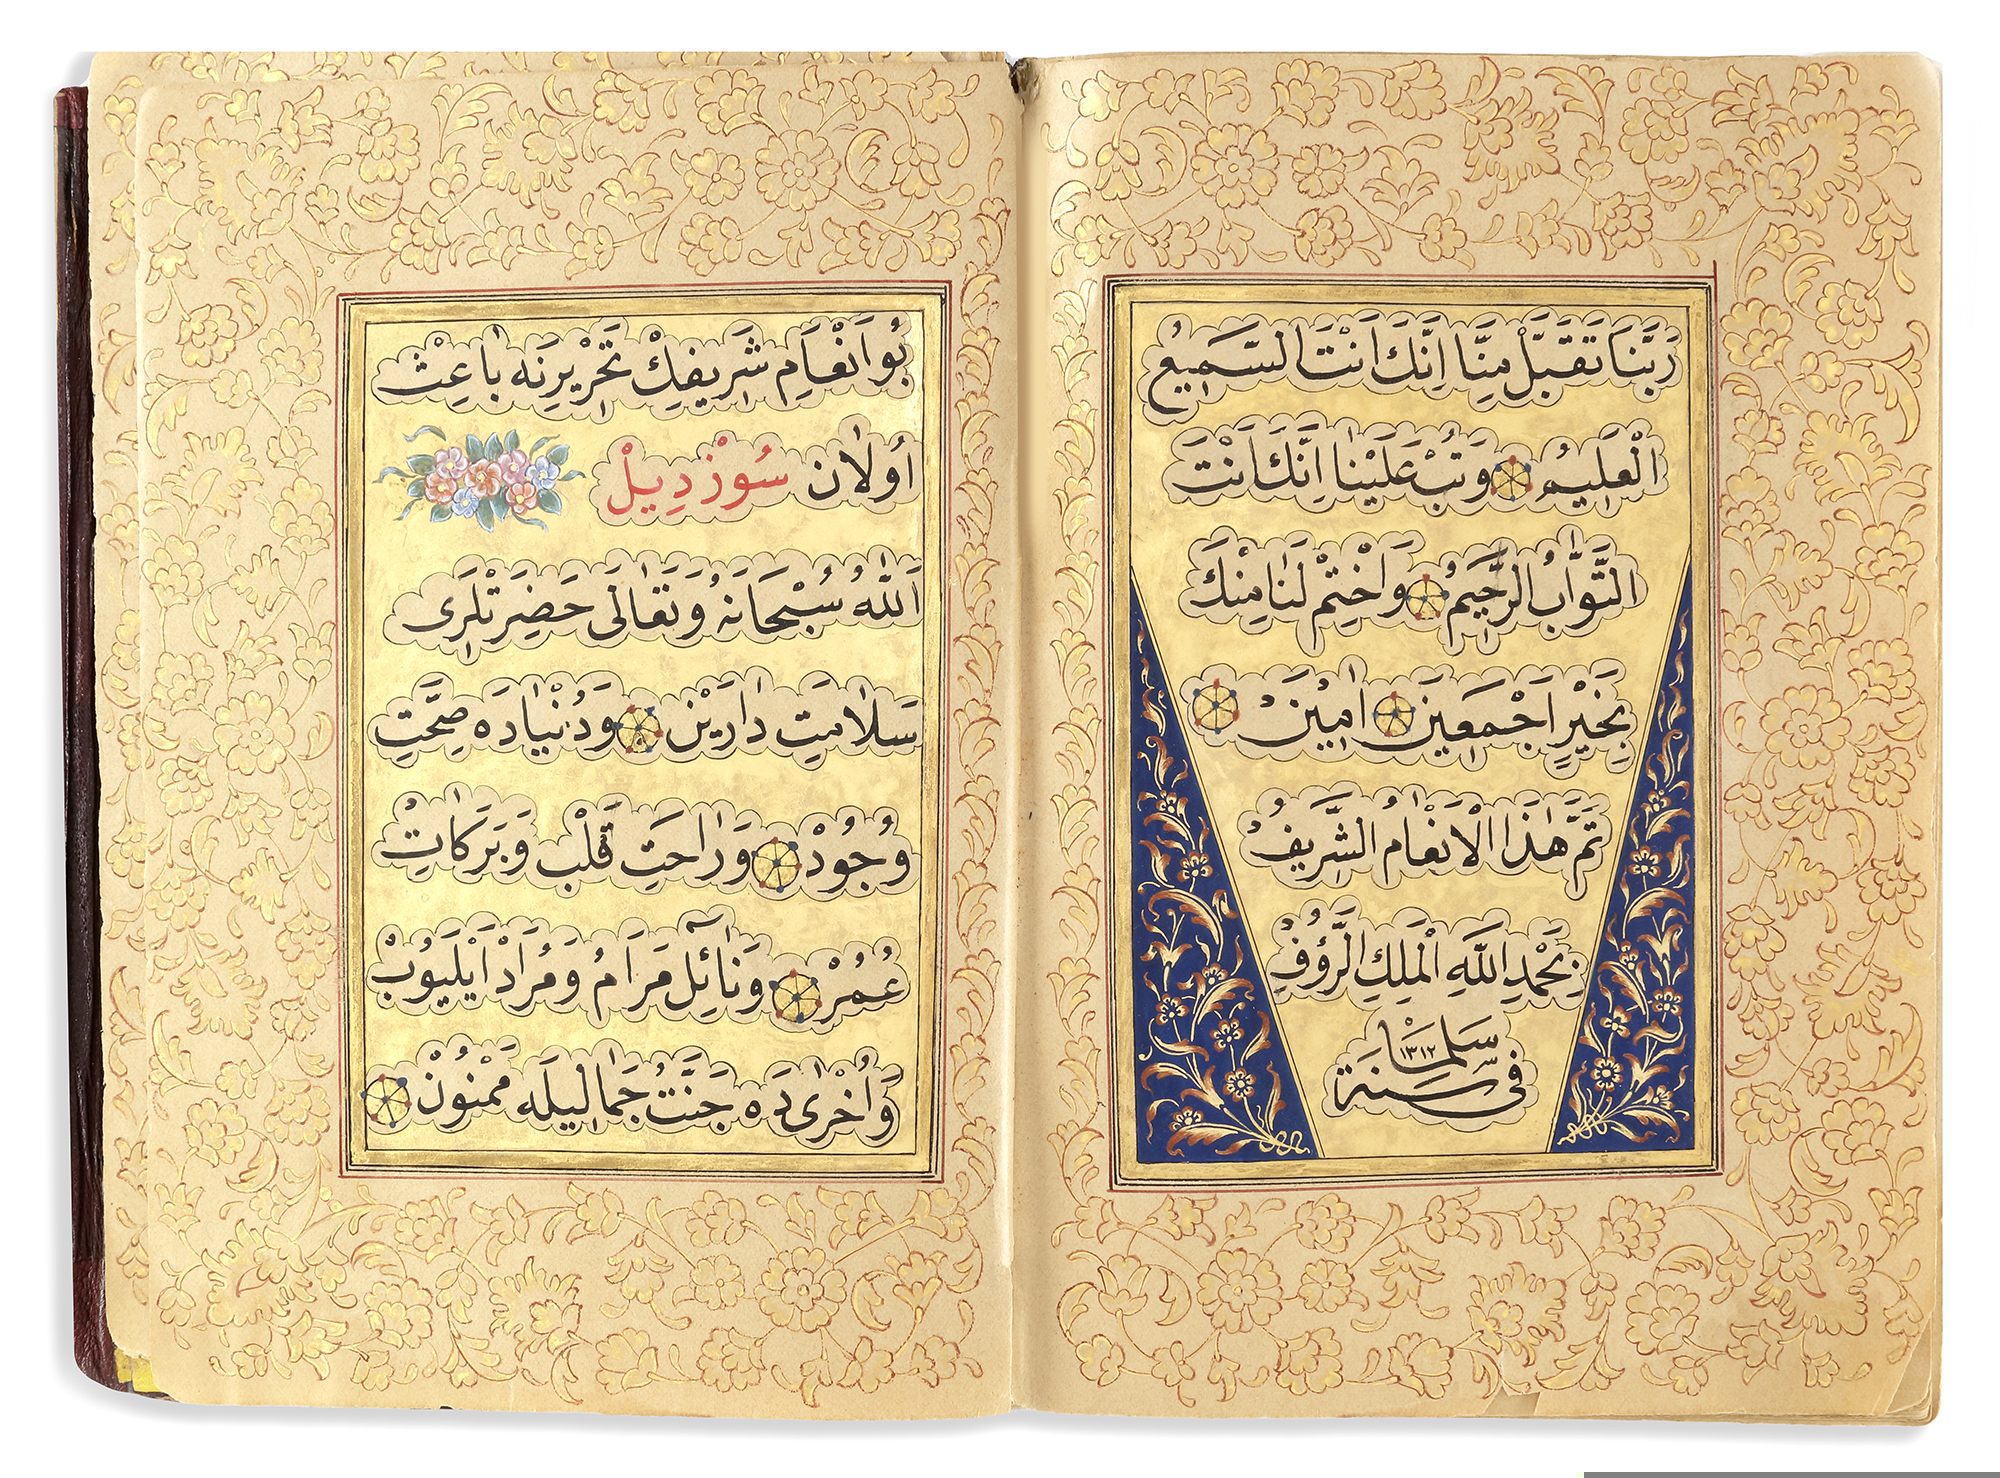 رَبَّنَا تَقَبَّلْ مِنَّا اِنَّكَ اَنْتَ السَّمِيعُ
الْعَلِيمُ وَتُبْ عَلَيْنَا اِنَّكَ اَنْتَ
التَّوَّابُ الرَّحِيمُ وَاخْتِمْ لَنَا مِنْكَ
بِخَيْرٍ اَجْمَعِينَ اٰمِينَ
تَمَّ هٰذَا الْاَنْعَامُ الشَّرِيفُ
بِحَمْدِ اللّٰهِ الْمَلِكِ الرَّؤُفِ
فى سَنَة ١٣١٢
بُو اَنْعَامِ شَرِيفِكْ تَحْرِيرِنَه بَاعِثْ
اُولَان سُوزْدِيلْ
اَللّٰهُ سُبْحَانَهُ وَتَعَالَى حَضِرَتْلَرِى
سَلَامَتِ دَارَيْن وَدُنْيَادَه صِحَّتِ
وُجُودْ وَرَاحَتِ قَلْب وَبَرَكَاتِ
عُمُرْ وَنَائِلِ مَرَامُ وَمُرَادْ اَيْلَيُوبْ
وَاُخْرٰى دَه جَنَّتُ جَمَالِيلَه مَمْنُونْ